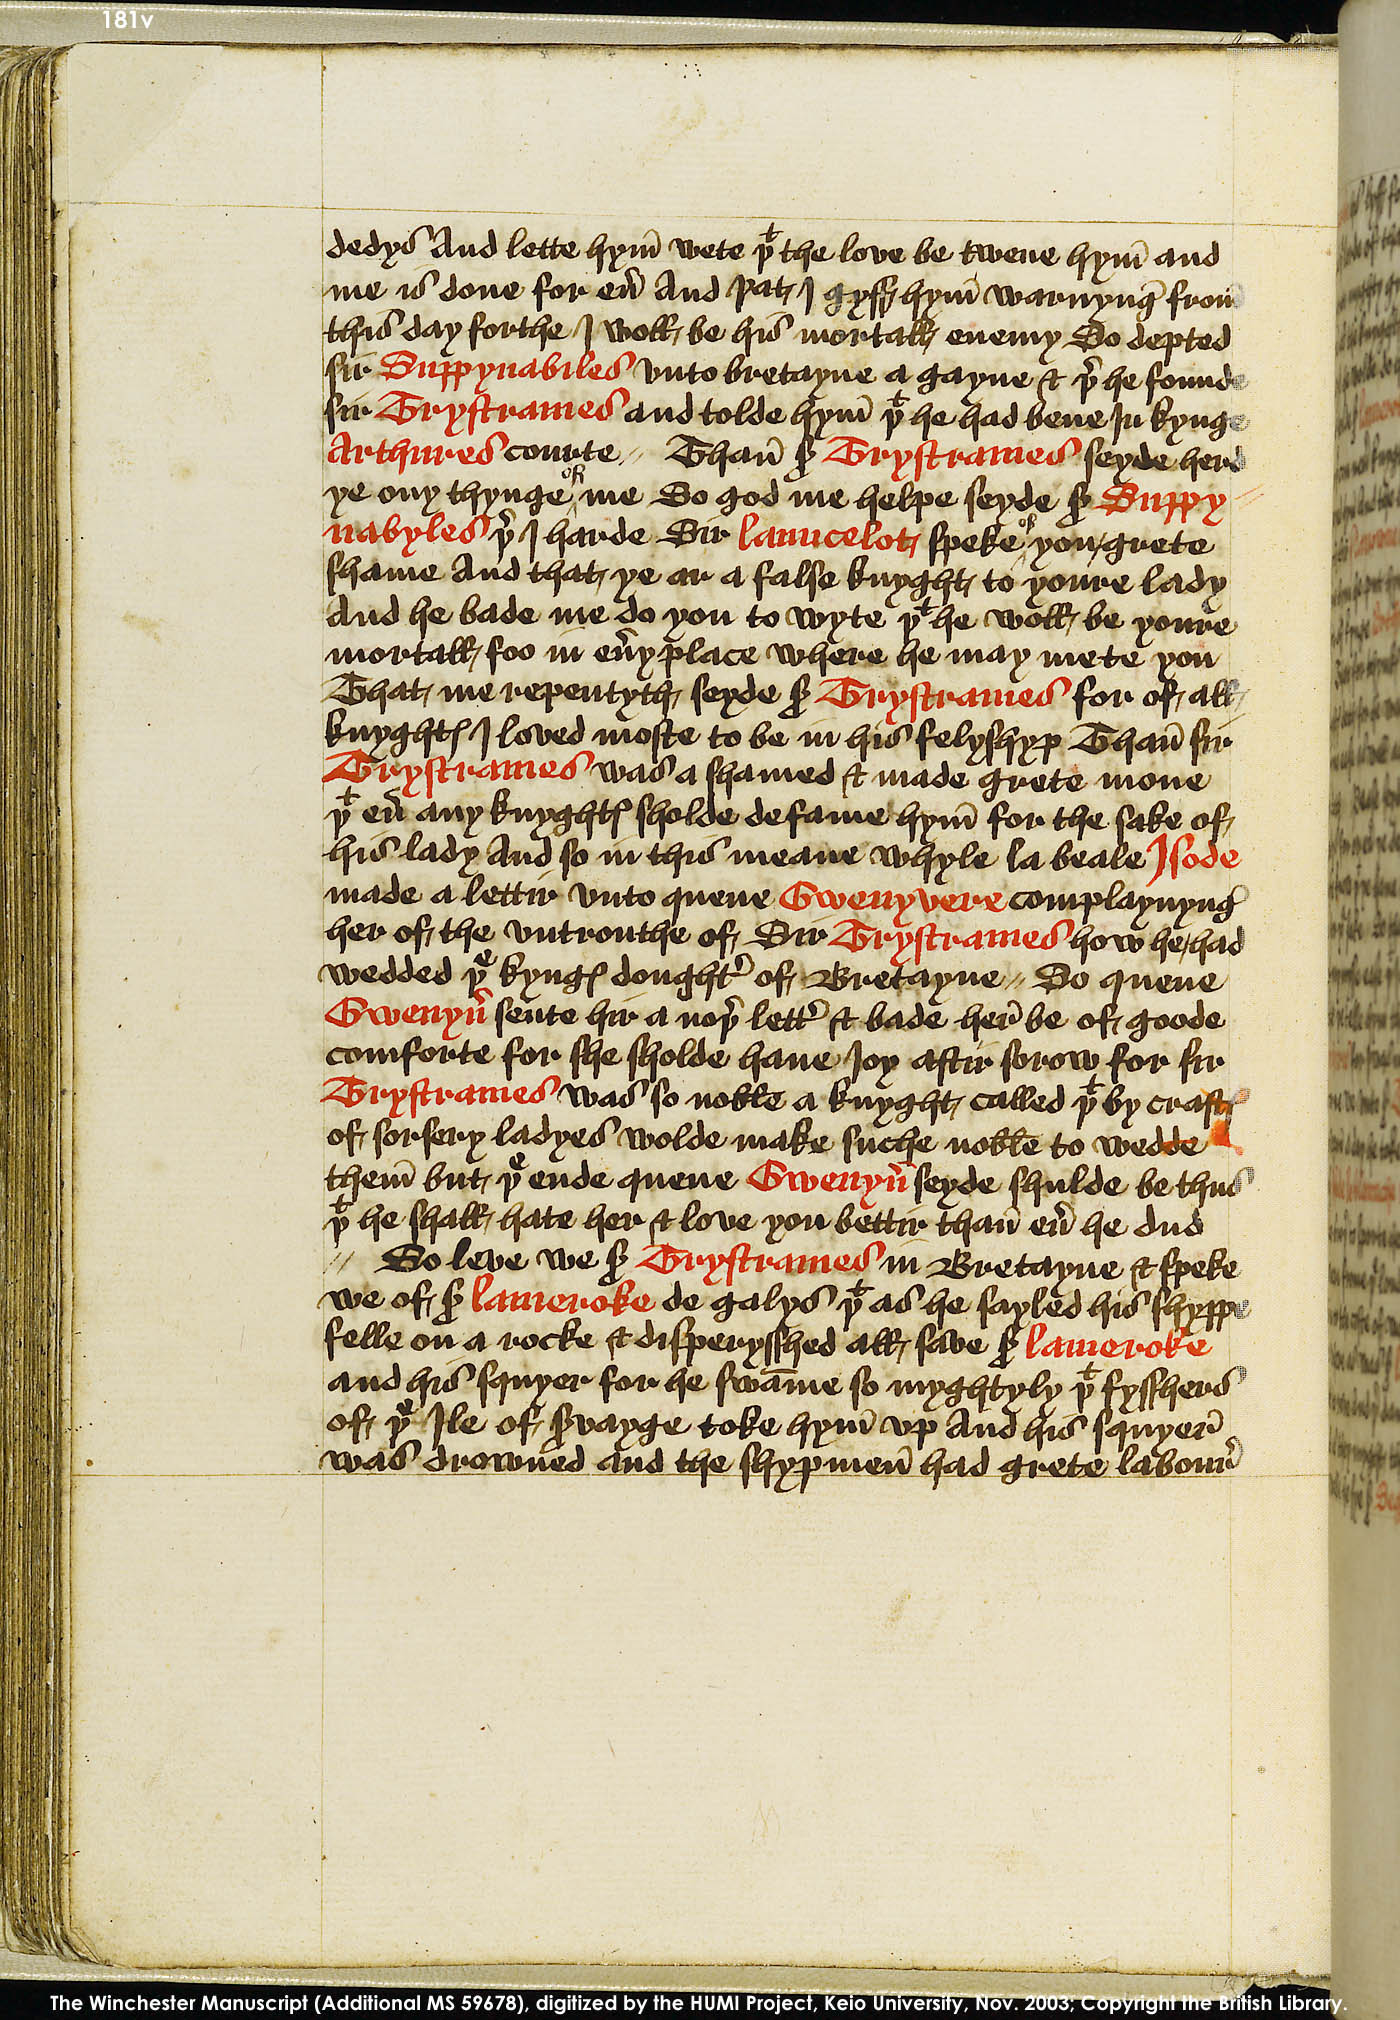 181v
dedys And lette hym̄ wete þᵗ the love be twene hym̄ and
me is done for eu̾ And þat I gyff hym̄ warnyng̾ from
this day forthe I woll be his mortall enemy So depted
sir Suppynabiles vnto bretayne a gayne & þ̾ he founde
sir Trystrames and tolde hym̄ þᵗ he had bene In kynge
Arthures courte // Than̄ s̾ Trystrames seyde herd
ye ony thynge of me So god me helpe seyde s̾ Suppy //
nabyles þ̾ I harde Sir launcelot speke of you grete
shame And that ye ar a false knyght to youre lady
And he bade me do you to wyte þᵗ he woll be youre
mortall foo in eu̾y place where he may mete you
That me repentyth seyde s̾ Trystrames for of all
knyghtꝭ I loved moste to be in his felyshyp Than̄ sir
Trystrames was a shamed & made grete mone
þᵗ eu̾ any knyghtꝭ sholde defame hym̄ for the sake of
his lady And so in this meane whyle la beale Isode
made a lettir vnto quene Gwenyvere complaynyng̾
her of the vntrouthe of Sir Trystrames how he had
wedded þᵉ kyngꝭ dought̾ of Bretayne // So quene
Gwenyu̾ sente hir a noþ̾ lett̾ & bade her̾ be of goode
comforte for she sholde haue Ioy aftir sorow for sir
Trystrames was so noble a knyght called þᵗ by craftꝭ
of sorsery ladyes wolde make suche noble to wedde
them̄ but þᵉ ende quene Gwenyu̾ seyde shulde be thus
þᵗ he shall hate her & love you bettir than̄ eu̾ he dud
// So leve we s̾ Trystrames in Bretayne & speke
we of s̾ lameroke de galys þᵗ as he sayled his shyppe
felle on a rocke & disperysshed all save s̾ lameroke
and his squyer for he swam̄e so myghtyly þᵗ fysshers
of þᵉ Ile of s̾vayge toke hym̄ vp And his squyer̾
was drowned and the shypmen̄ had grete labour̾
The Winchester Manuscript (Additional MS 59678), digitized by the HUMI Project, Keio University, Nov. 2003; Copyright the British Library.